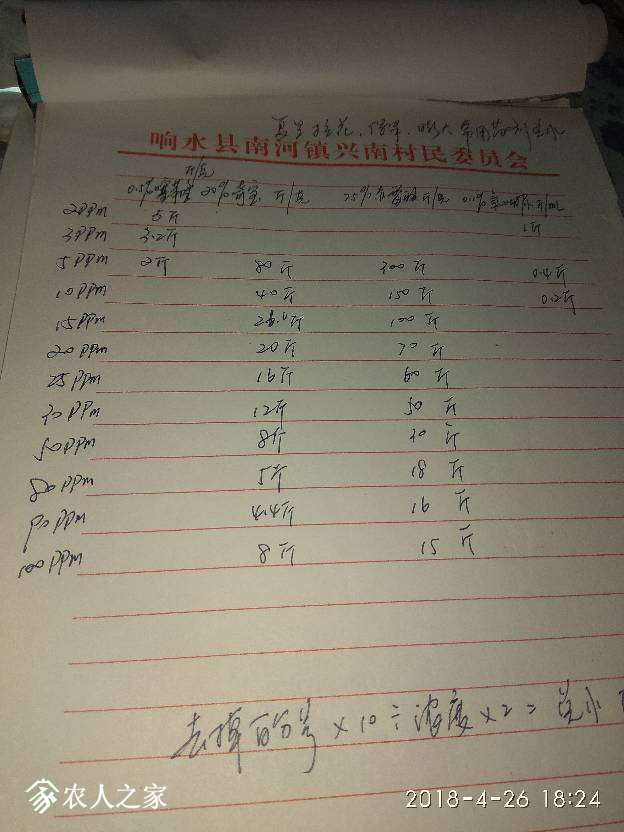 常用药剂
响水县南河镇兴南村民委员会
斤/克
0.5% 20% 斤/克 75% 斤/克 0.1% 斤/ml
2PPm 5斤
3PPm 3.2斤 1斤
5PPm 2斤 80斤 300斤 0.4斤
10PPm 40斤 150斤 0.2斤
15PPm 斤 100斤
20PPm 20斤 70斤
25PPm 16斤 60斤
30PPm 12斤 50斤
50PPm 8斤 30斤
80PPm 5斤 18斤
90PPm 4.4斤 16斤
100PPm 8斤 15斤
去掉百分号×10÷浓度×2=兑水
农人之家
2018-4-26 18:24